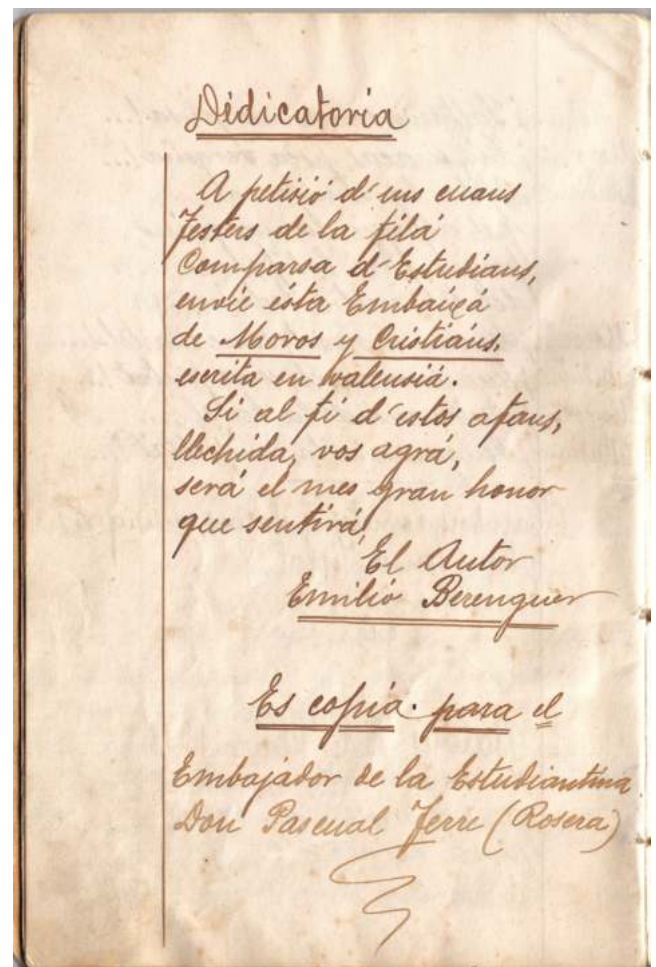 Didicatoria
A petisió d'uns cuans
festers de la filá
Comparsa d'Estudians,
envíe ésta Embaixá
de Moros y Cristiáns,
escrita en valensiá.
Si al fi d'estos afans,
llechida, vos agrá,
será el mes gran honor
que sentirá,
El Autor
Emilio Berenguer
Es copia para el
Embajador de la Estudiantina
Don Pascual Ferre (Rosera)